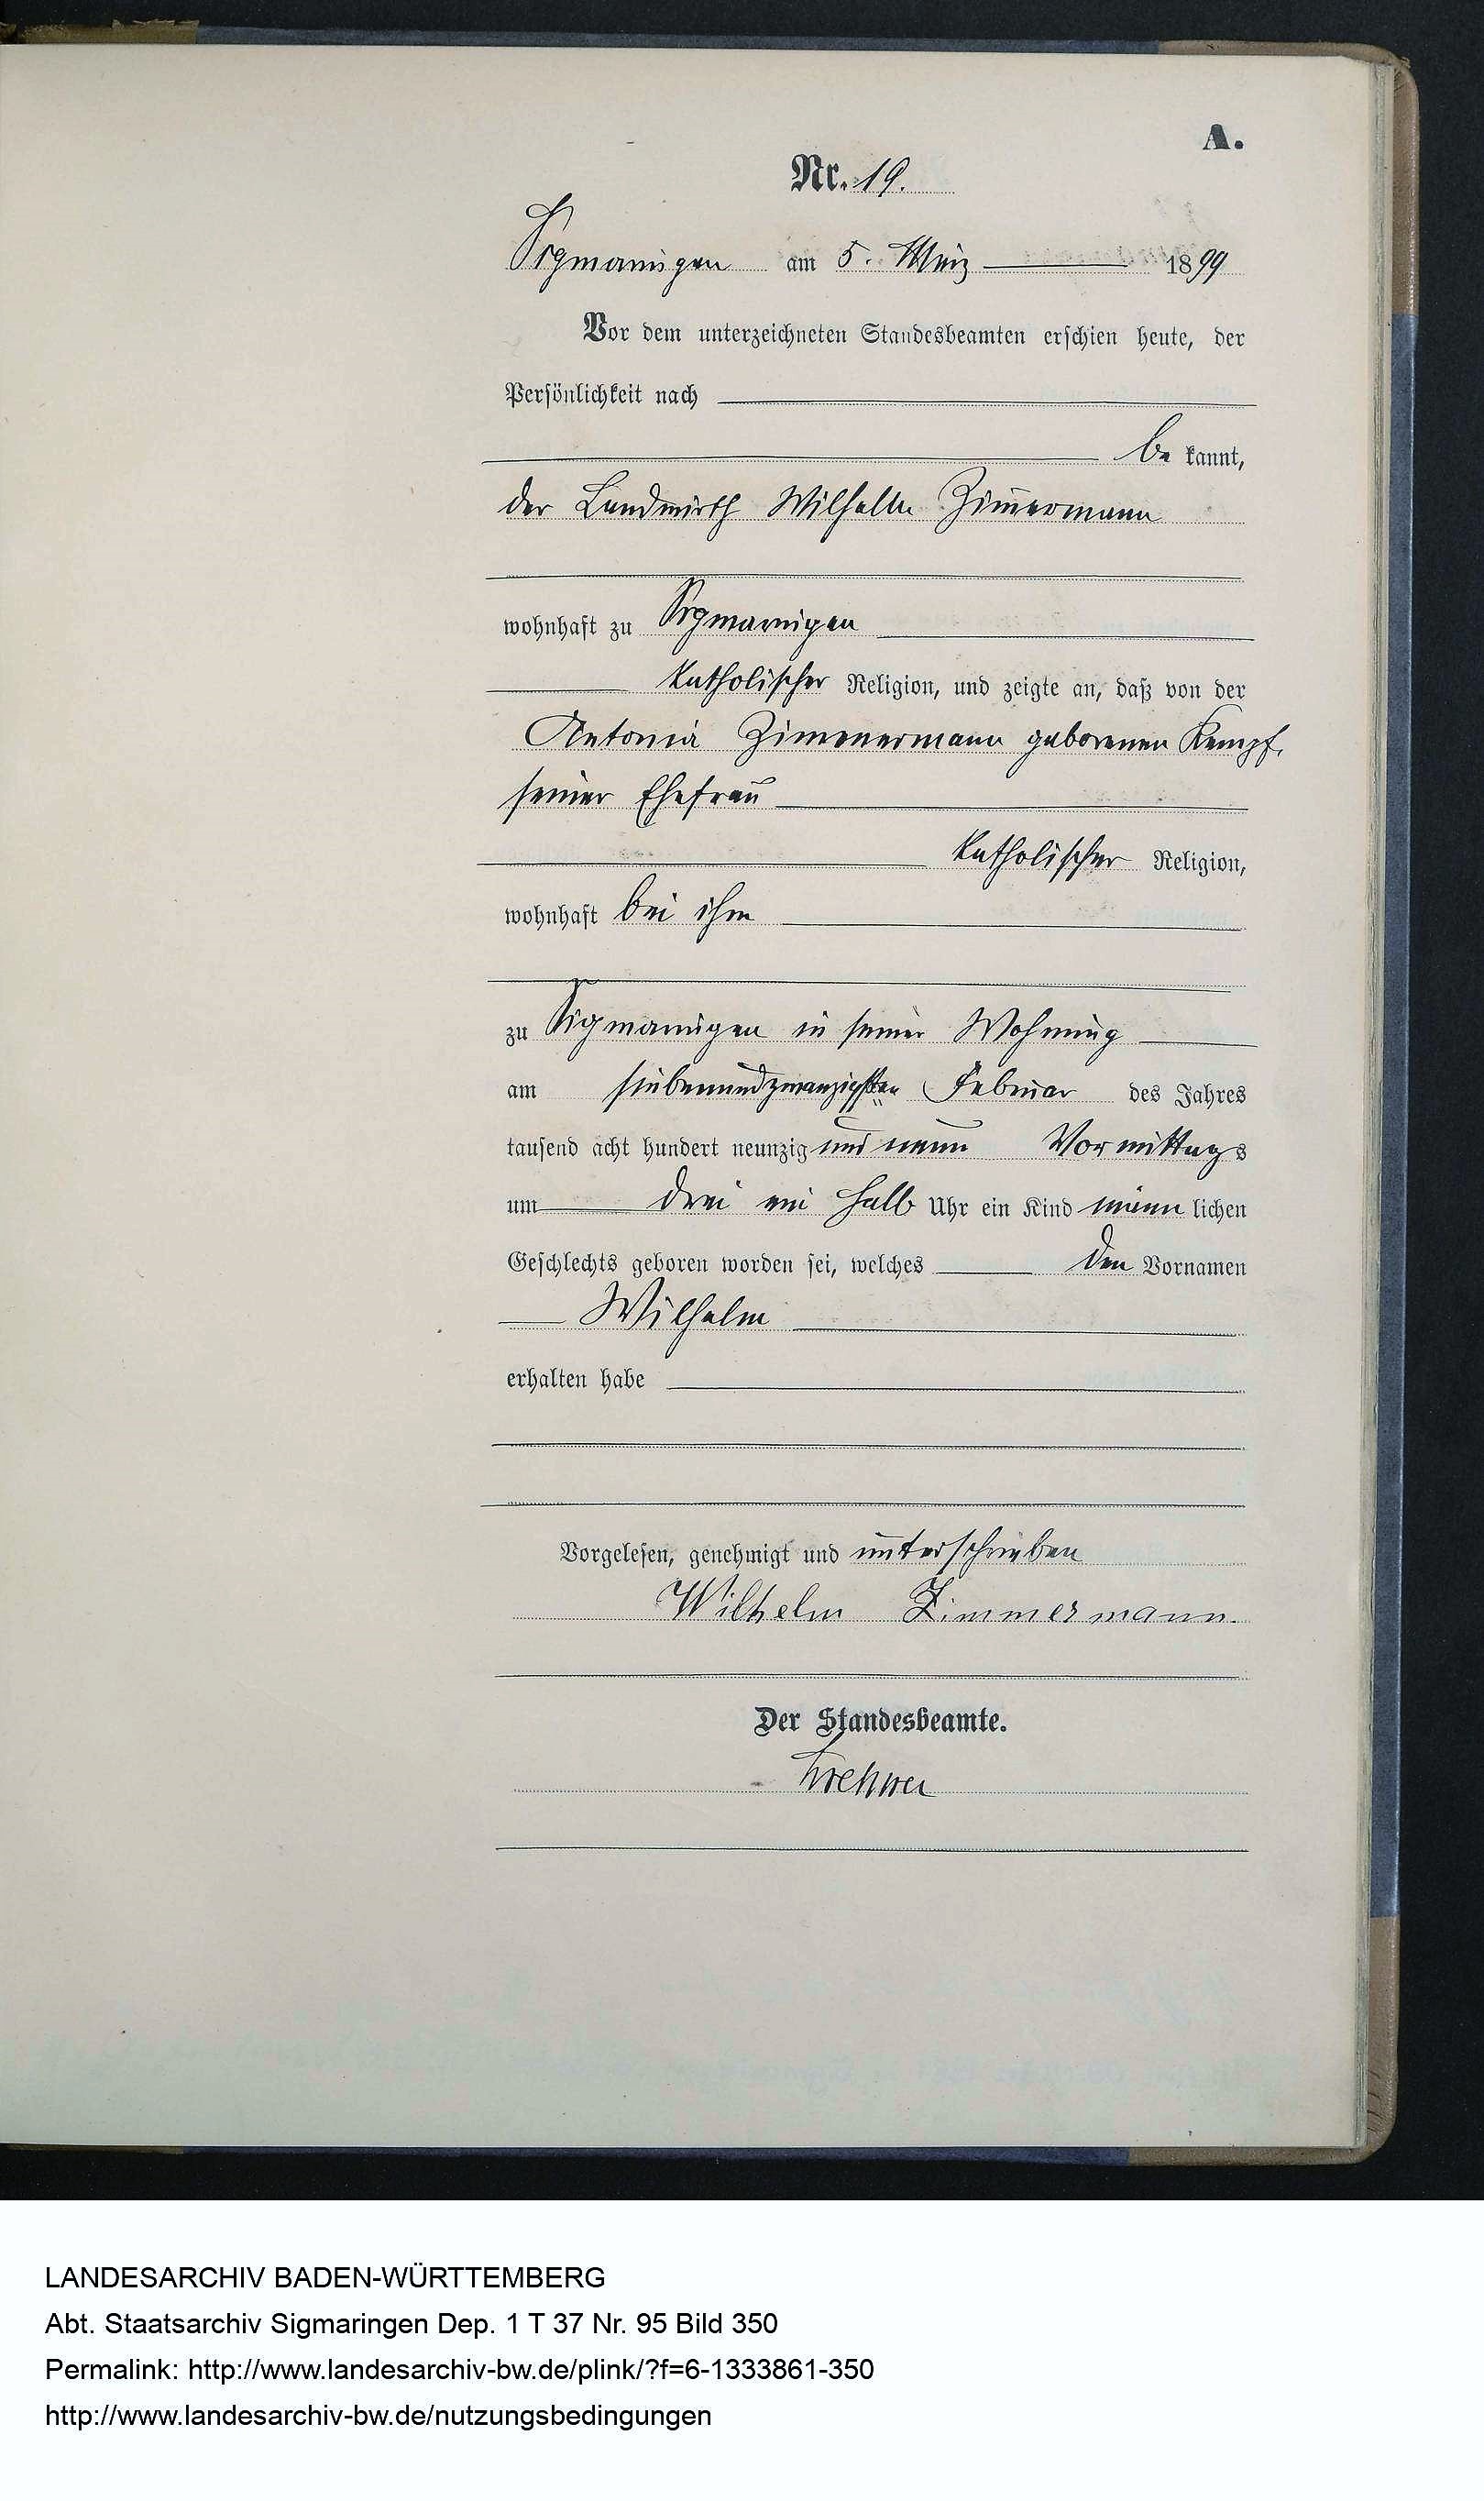 A.
Nr. 19.
Sigmaringen am 5. März 1899
Vor dem unterzeichneten Standesbeamten erschien heute, der
Persönlichkeit nach
be kannt,
der Landwirth Wilhelm Zimmermann
wohnhaft zu Sigmaringen
katholischer Religion, und zeigte an, daß von der
Antonia Zimmermann geborenen Kempf,
seiner Ehefrau
katholischer Religion,
wohnhaft bei ihm
zu Sigmaringen in seiner Wohnung
am siebenundzwanzigsten Februar des Jahres
tausend acht hundert neunzig und neun Vormittags
um drei ein halb Uhr ein Kind männlichen
Geschlechts geboren worden sei, welches den Vornamen
Wilhelm
erhalten habe
Vorgelesen, genehmigt und unterschrieben
Wilhelm Zimmermann.
Der Standesbeamte.
LANDESARCHIV BADEN-WÜRTTEMBERG
Abt. Staatsarchiv Sigmaringen Dep. 1 T 37 Nr. 95 Bild 350
Permalink: http://www.landesarchiv-bw.de/plink/?f=6-1333861-350
http://www.landesarchiv-bw.de/nutzungsbedingungen